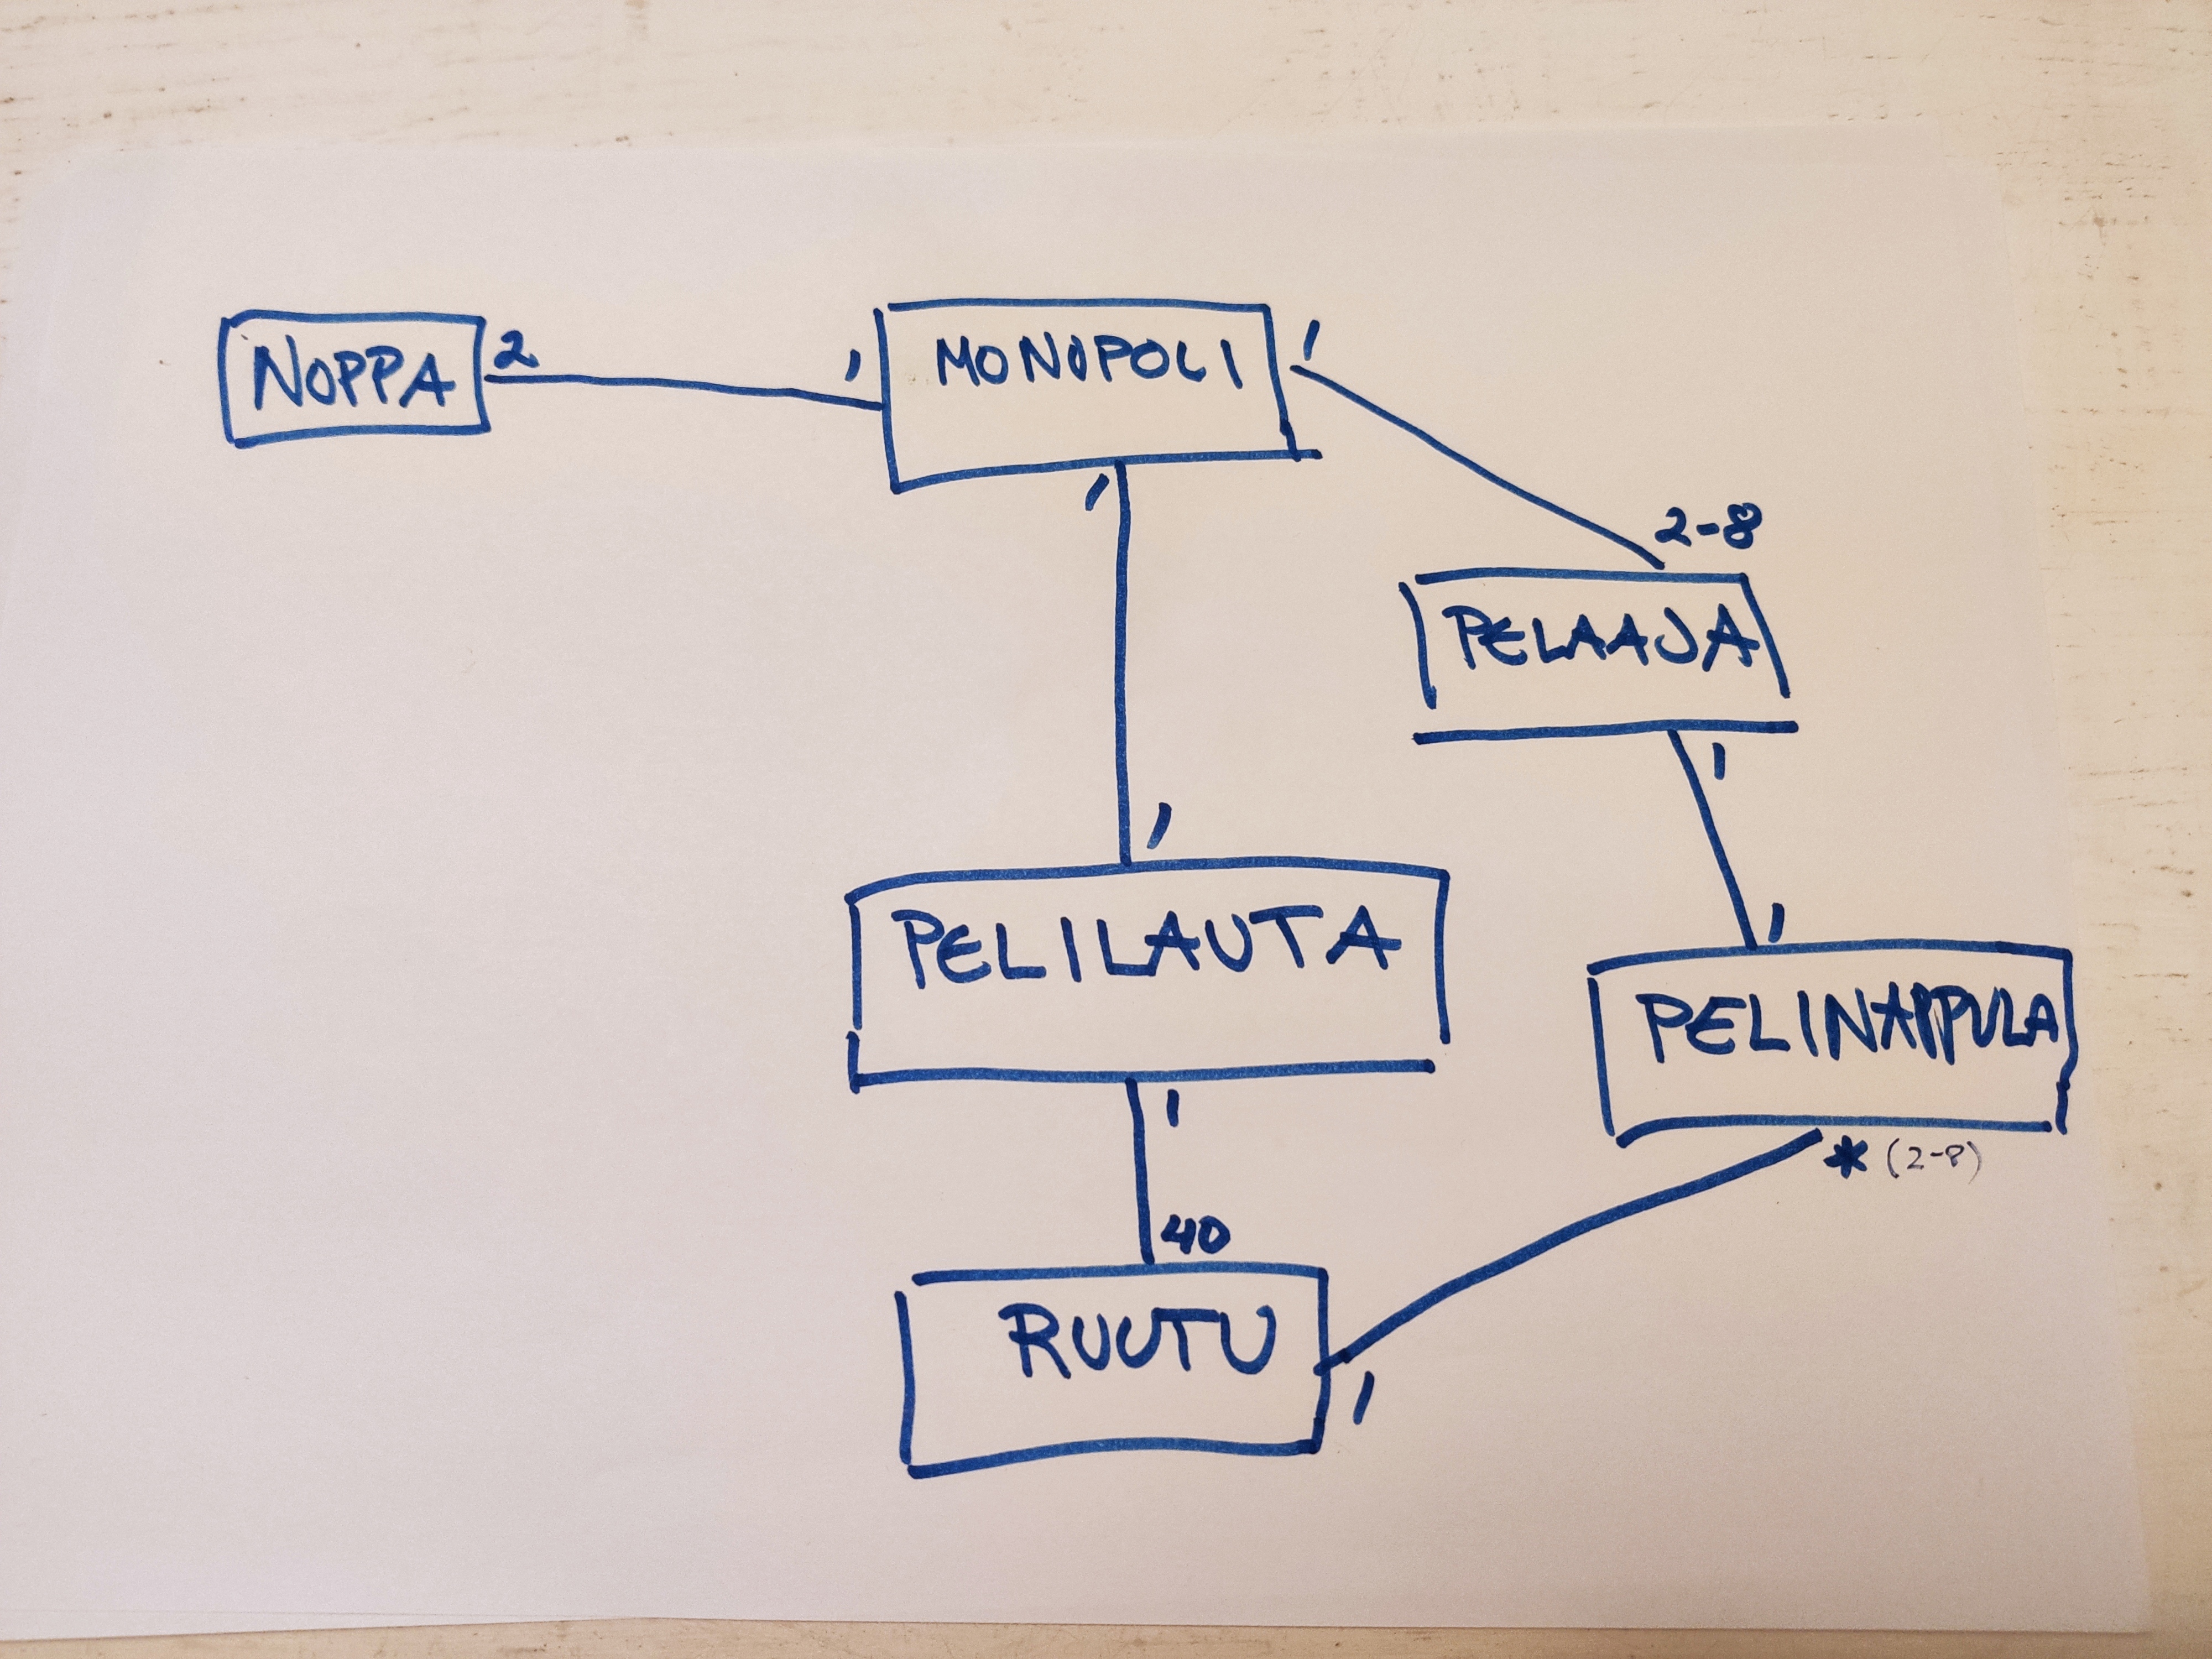 NOPPA
2
1
MONOPOLI
1
1
2-8
PELAAJA
1
1
PELILAUTA
1
PELINAPPULA
1
* (2-8)
40
RUUTU
1